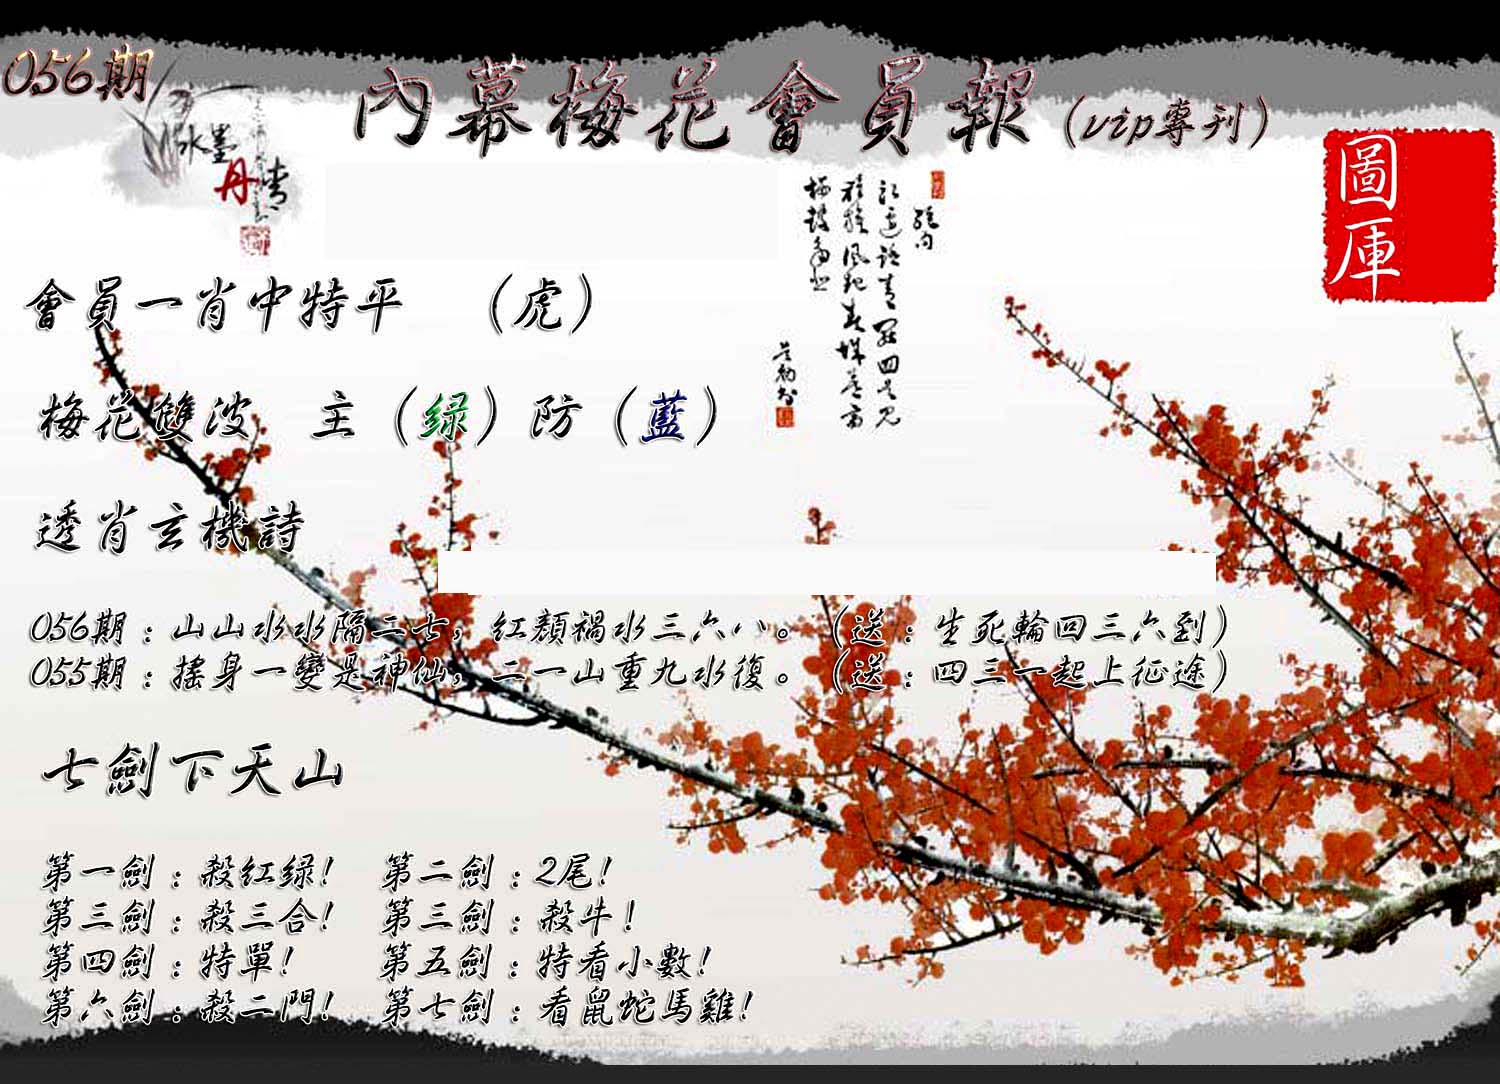 056期
內幕梅花會員報（vip專刊）
水墨
丹青
圖
庫
會員一肖中特平　（虎）
梅花雙波　主（绿）防（藍）
透肖玄機詩
056期：山山水水隔二七，红顏禍水三六八。（送：生死輪回三六到）
055期：搖身一變是神仙，二一山重九水復。（送：四三一起上征途）
七劍下天山
第一劍：殺红绿！　第二劍：2尾！
第三劍：殺三合！　第三劍：殺牛！
第四劍：特單！　第五劍：特看小數！
第六劍：殺二門！　第七劍：看鼠蛇馬雞！